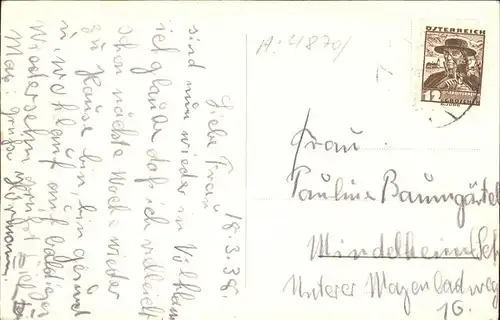 18.3.38.
Liebe Frau
sind nun wieder in
ich glaube daß ich vielleicht
schon nächste Woche wieder
zu Hause bin bin gesund
u. wohlauf auf baldiges
Wiedersehn grüßt
A: 4870/
ÖSTERREICH
12 GROSCHEN
Frau
Pauline Baumgärtel
Mindelheim
Unterer Mayenbadweg
10.